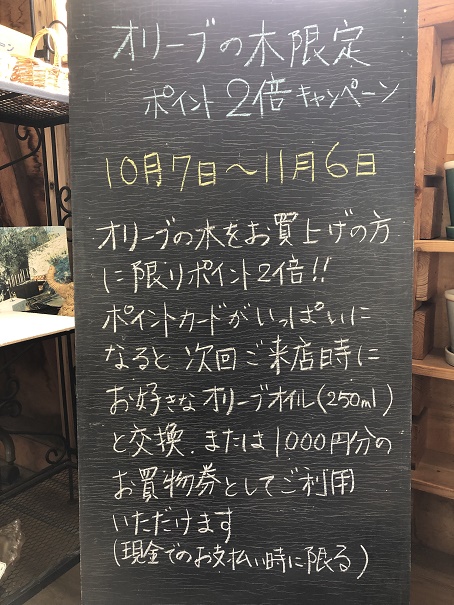 オリーブの木限定
ポイント2倍キャンペーン
10月7日～11月6日
オリーブの木をお買上げの方
に限りポイント2倍!!
ポイントカードがいっぱいに
なると次回ご来店時に
お好きなオリーブオイル(250ml)
と交換.または1000円分の
お買物券としてご利用
いただけます
(現金でのお支払い時に限る)